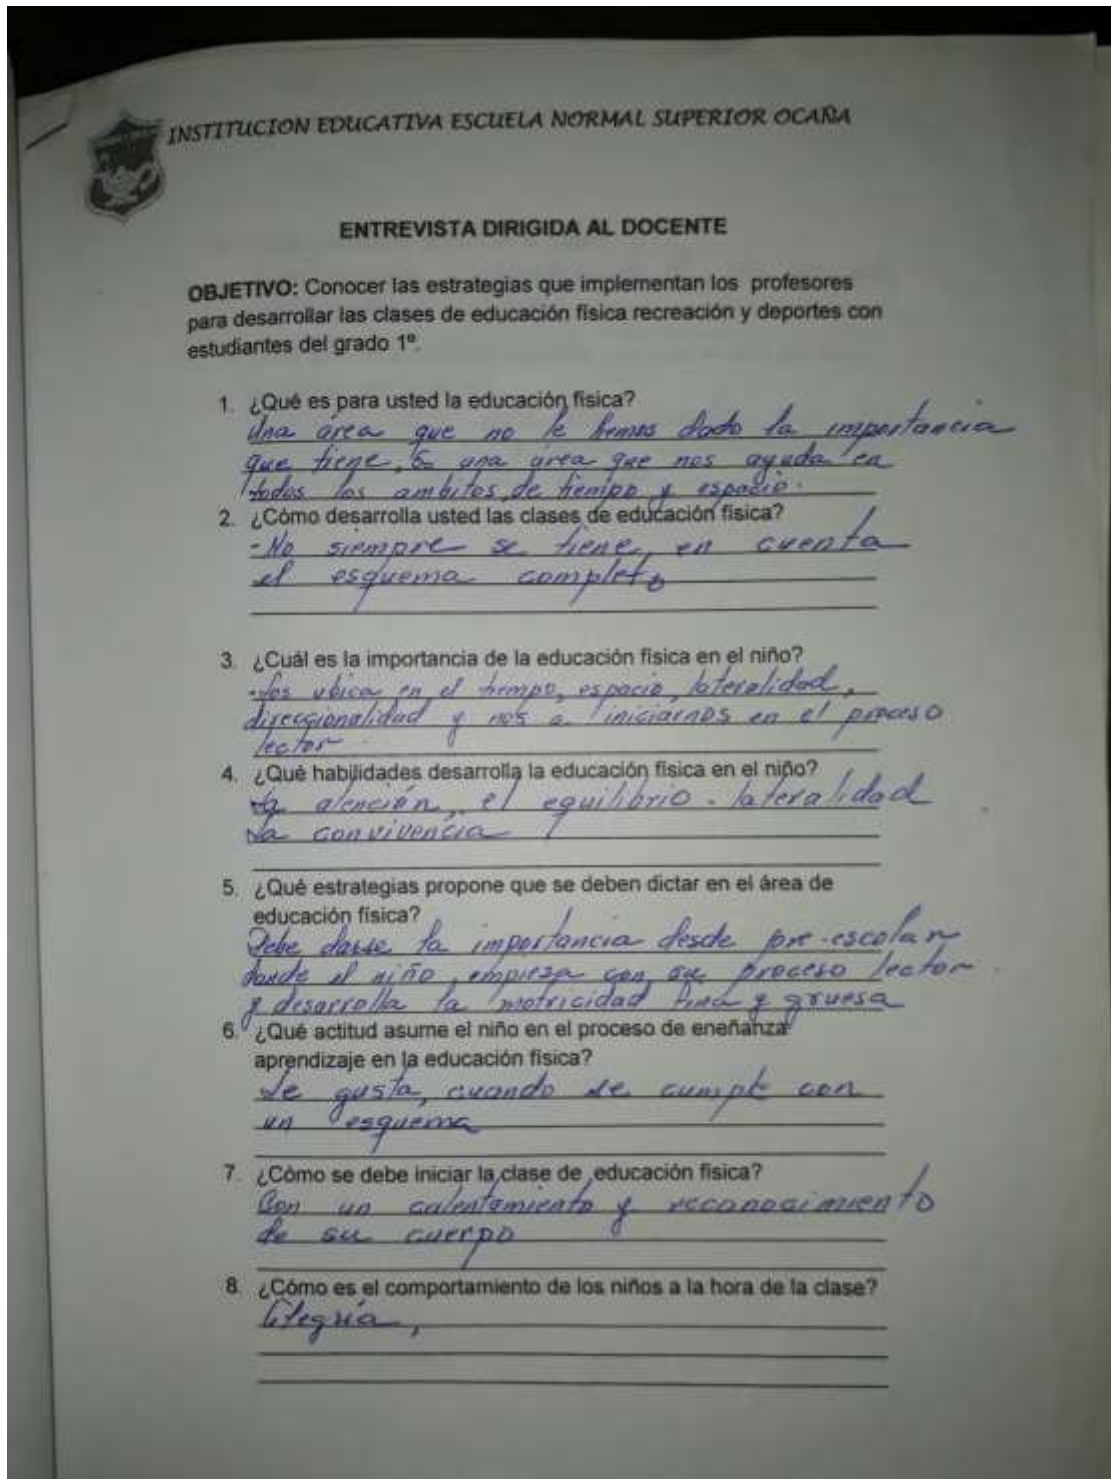 INSTITUCION EDUCATIVA ESCUELA NORMAL SUPERIOR OCAÑA
ENTREVISTA DIRIGIDA AL DOCENTE
OBJETIVO: Conocer las estrategias que implementan los profesores
para desarrollar las clases de educación física recreación y deportes con
estudiantes del grado 1º.
1. ¿Qué es para usted la educación física?
Una área que no le hemos dado la importancia
que tiene, Es una área que nos ayuda en
todos los ambitos, de tiempo y espacio.
2. ¿Cómo desarrolla usted las clases de educación física?
- No siempre se tiene en cuenta
el esquema completo
3. ¿Cuál es la importancia de la educación física en el niño?
-los ubica en el tiempo, espacio, lateralidad,
direccionalidad y nos a iniciarnos en el proceso
lector.
4. ¿Qué habilidades desarrolla la educación física en el niño?
la atención, el equilibrio. lateralidad
la convivencia
5. ¿Qué estrategias propone que se deben dictar en el área de
educación física?
Debe darse la importancia desde pre-escolar
donde el niño empieza con su proceso lector.
y desarrolla la motricidad fina y gruesa
6. ¿Qué actitud asume el niño en el proceso de eneñanza
aprendizaje en la educación física?
Le gusta, cuando se cumple con
un esquema
7. ¿Cómo se debe iniciar la clase de educación física?
Con un calentamiento y reconocimiento
de su cuerpo
8. ¿Cómo es el comportamiento de los niños a la hora de la clase?
Alegría,